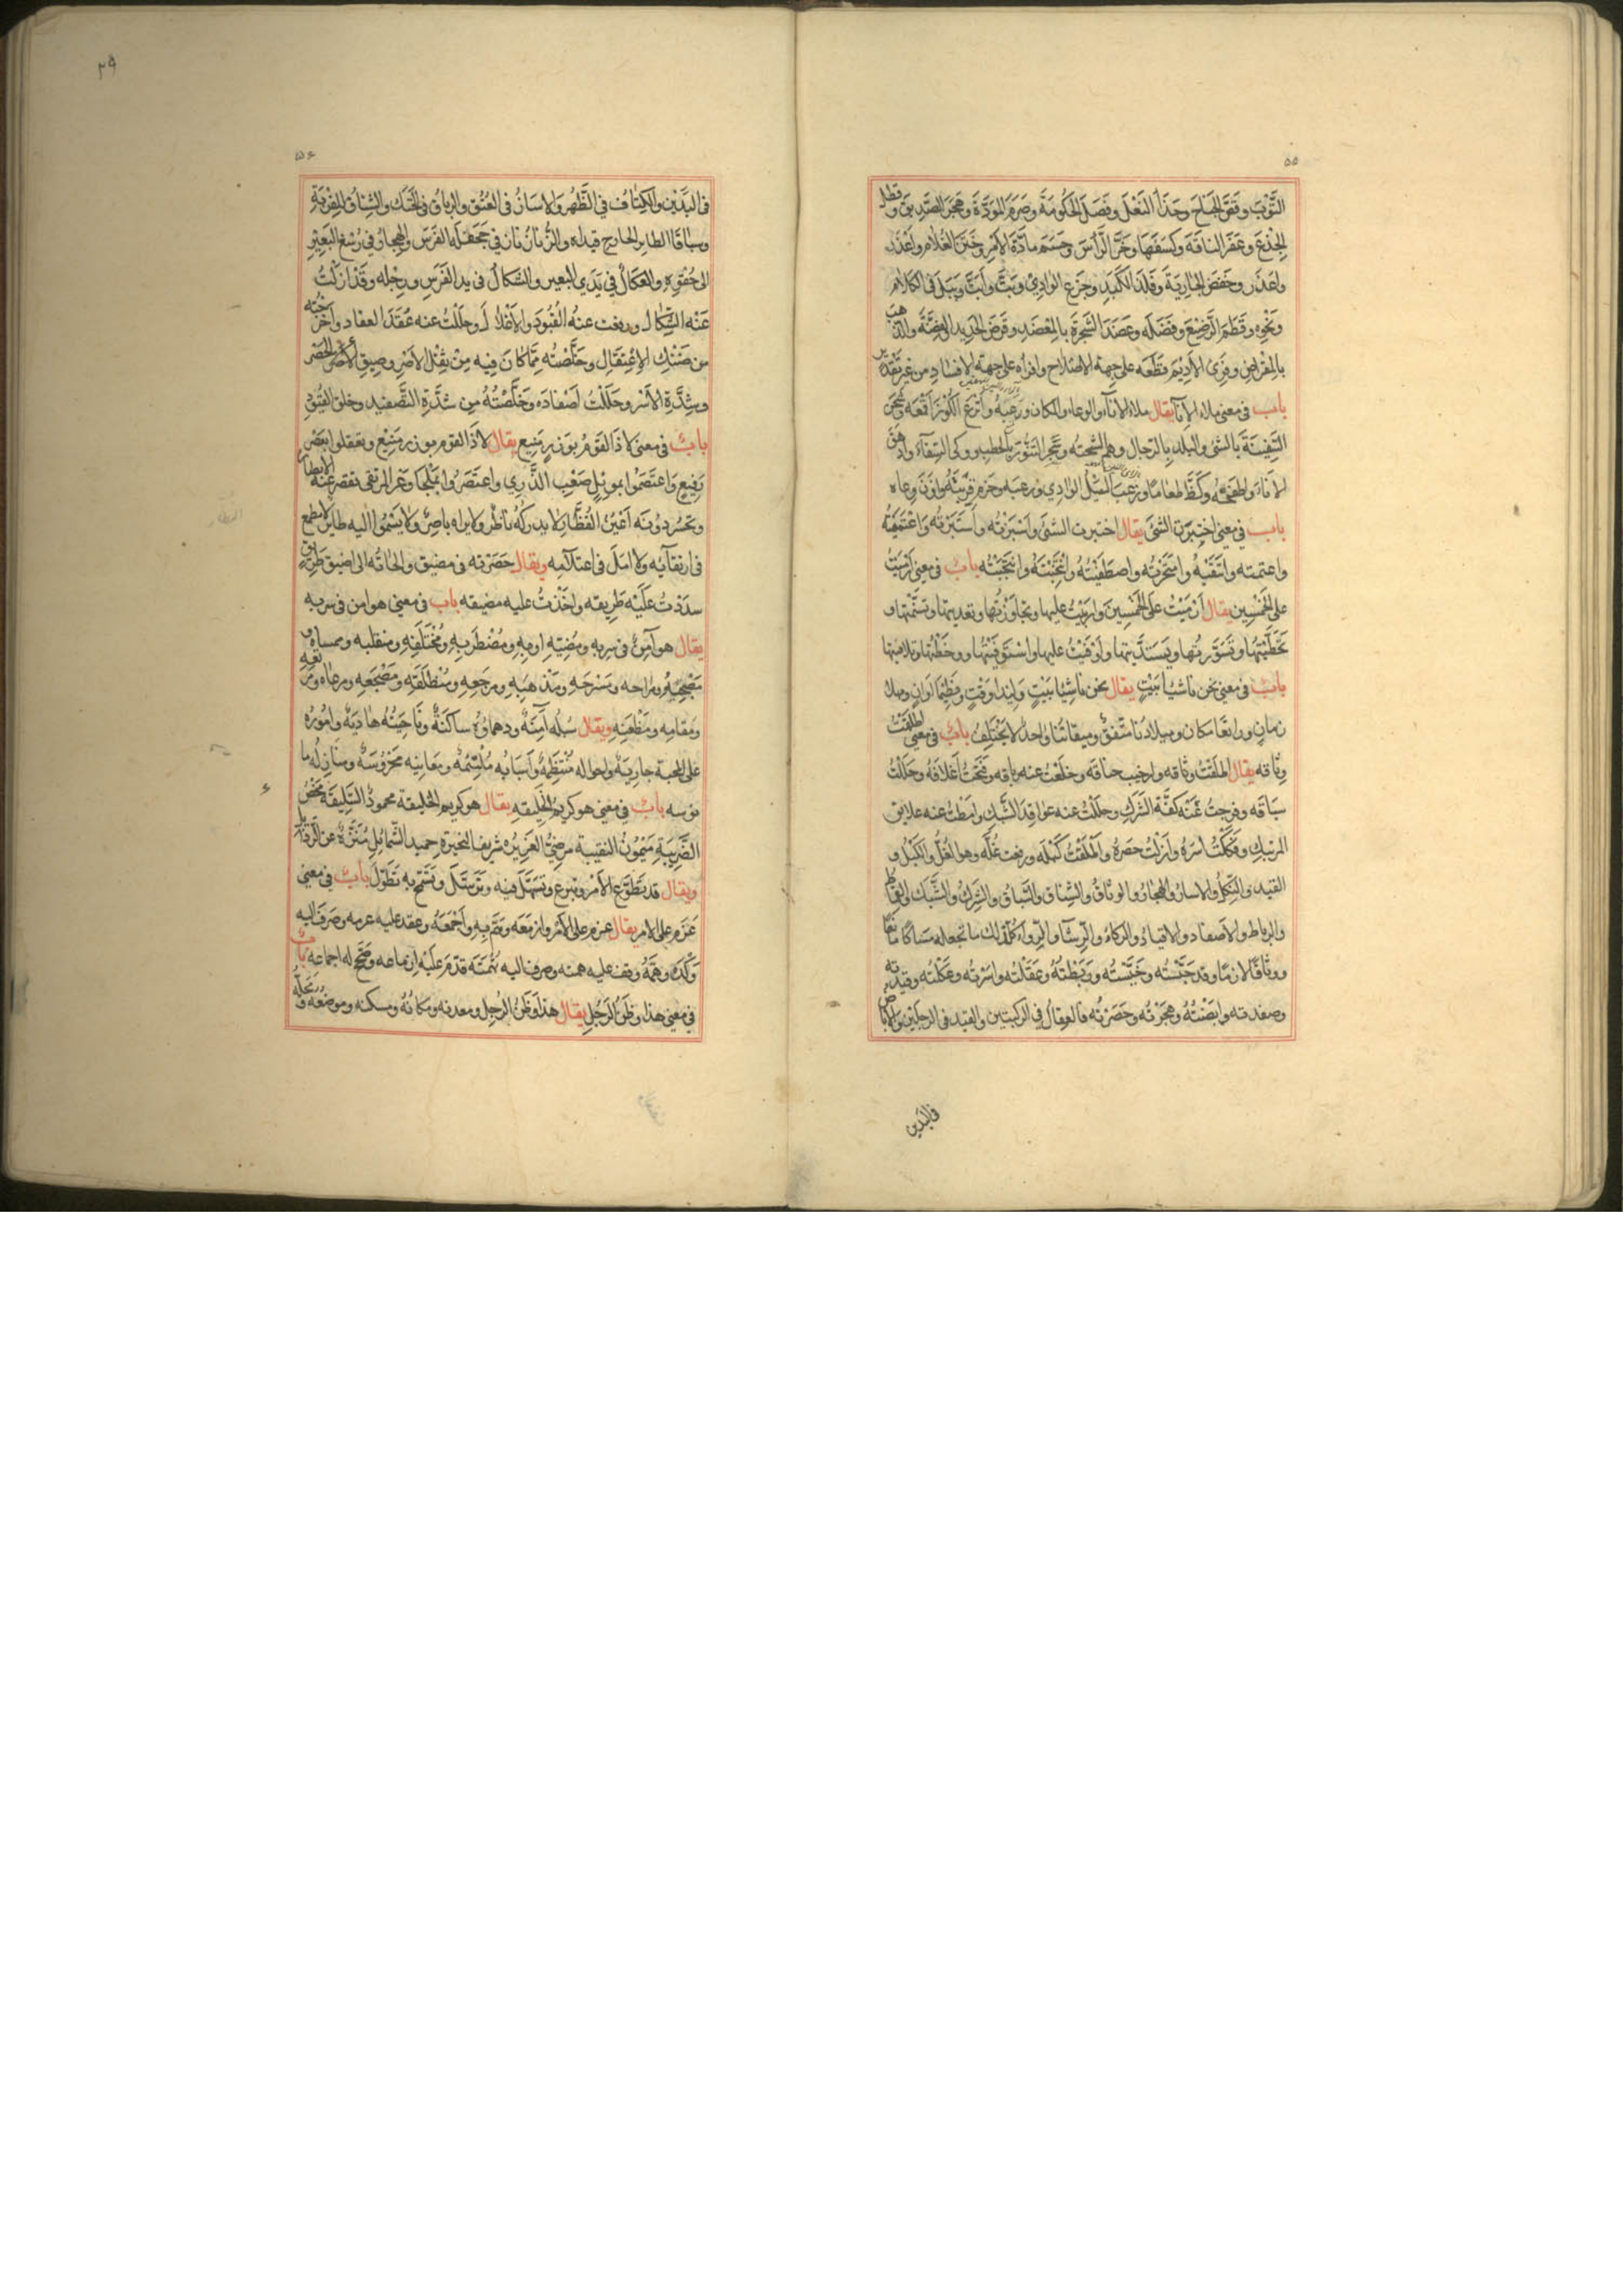 ٥٥
الثَّوْبَ وقصَّ الجناحَ وحذا النعل وفصل الحكومة وصرم المودّة وهجر الصديق وقطل
الجِذعَ وعقر الناقة وكسفها وحزّ الرأس وحسم مادّة الأمر وختن الغلام وأعذر
واعذر وخفض الجارية وفلذ الكبد وجزع الوادي وبتّ وأبتّ وبتل في الكلام
ونحوه وفطم الرضيع وفصله وعضد الشجرة بالمعضد وقرض الحديد الفضّة والذهب
بالمقراض وفرى الأديم قطعه على جهة الاصلاح وافراه على جهة الافساد من غير تقدير
باب في معنى ملاء الإناء يقال ملاء الإناء والوعاء والمكان ورعبه وأترع الكوز أفعمه وشحن
السفينة بالشيء والبلد بالرجال وهم الشحنة وسجر التنور بالحطب ووكى السقاء وادهق
الاناء وطفحه وكظّ طعامًا وزعب السيل الوادي ورعبه وحزم قربته واوزن وعاه
باب في معنى اختبرت الشيء يقال اختبرت الشيء واسبرته واستبرته واعتميته
واعتمته وانتقيته وامتخرته واصطفيته وانتخبته وانتجبته باب في معنى ارميت
على الخمسين يقال ارميت على الخمسين واربيت عليها وتجاوزتها وتعديتها وتسنمتها و
تخطّيتها وتسوّرتها وتسدّيتها واوفيت عليها واستوفيتها
باب في معنى نحن ناشيا بيت يقال نحن ناشيا بيت وليدا وقت وفطيما اوان
زمان وراتعا مكان وميلادنا متّفق وميقاتنا واحد لا يختلف باب في معنى اطلقت
وثاقه يقال اطلقت وثاقه وارخيت حناقه وخلعت عنه رباقه وفتحت أغلاقه وحللت
سباقه وفرجت عنه كفّة الشرك وحللت عنه عواقد الشبك وامطت عنه علايق
المرتبك وفككت اسره وازلت حصره واطلقت كبله ورفعت غلّه وهو الغلّ والكبل و
القيد والنكل والاسار والهجار والوثاق والشناق والسباق والشرك والشبك والقماط
والرباط والاصفاد والاقياد والركاء والرشاء والرواء كلّ ذلك ما تجعله
ووثاقًا لازمًا وقد حبسته وخيّسته وربطته وعقلته واسرته وعكلته وقيدته
وصفدته وابضته وهجرته وحصرته فالعقال في الركبتين والقيد في الرجلين والاباض
في اليدين
٢٩
٥٦
في اليدين والكتاف في الظهر والاسار في العنق والرباق في الحنك والشناق للقربة
وسباقا الطاير الجارح قيداه والزناقان في جحفلة الفرس والهجار في رسغ البعير
الى حقوه والعكال في يدي البعير والشكال في يد الفرس ورجله وقد ازلت
عنه الشكال ورفعت عنه القيود والأغلال وحللت عنه عقد العقاد وأخرجته
من ضنك الإعتقال وخلّصته ممّا كان فيه من ثقل الاصر وضيق الحصر
وشدّة الاسر وحللت اصفاده وخلّصته من شدّة التصفيد وخلق القيود
باب في معنى لاذ القوم بوزر منيع يقال لاذ القوم بوزر منيع وتعقلوا بعض
رفيع واعتصموا بموئل صعب الذرى واعتصروا بملجا وعر المرتقى تقصر عنه الابطار
وتحسر دونه أعين النظّار لا يدركه ناظر ولا يراه باصر ولا يسموا اليه طاير لا مطمع
في ارتقائه ولا امل في اعتلائه ويقال حصرته في مضيق والجاته الى اضيق طريق
سددت عليه طريقه واخذت عليه مضيقه باب في معنى هو امن في سربه
يقال هو آمن في سربه ومضطربه ومختلفه ومنقلبه وممساه و
مصبحه ومراحه ومسرحه ومذهبه ومرجعه ومنطلقه ومضجعه ومرعاه
ومقامه ومظعنه ويقال سبله آمنة ودهماؤه ساكنة وناحيته هادية واموره
على المحبة جارية واحواله منتظمة وأسبابه ملتئمة ومغانيه محروسة ومنازله ما
نوسه باب في معنى هو كريم الخليقة يقال هو كريم الخليقة محمود السليقة محض
الضريبة ميمون النقيبة مرضيّ الغريزة شريف النحيزة حميد الشمائل منزّه عن
ويقال قد تطوّع الأمر وتبرع وتسهّل فيه وتسمّح به تطوّل باب في معنى
عزم على الامر يقال عزم على الأمر وازمعه وهمّ به واجمعه وعقد عليه عزمه وصرف اليه
وكده وهمّه وقف عليه همته وصرف اليه نهمته قدّم عليه ازماعه وصحّ له اجماعه باب
في معنى هذا وطن الرجل يقال هذا وطن الرجل ومعدنه ومكانه ومسكنه وموضعه ومحلّه